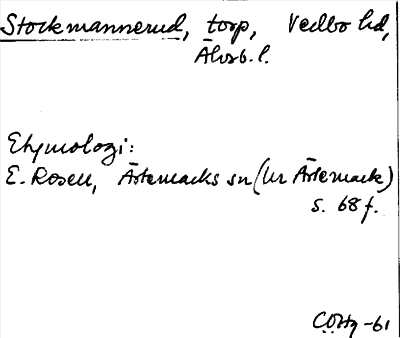 Stockmannerud, torp, Vedbo hd,
Älvsb. l.
Etymologi:
E. Rosell, Ärtemarks sn (ur Ärtemark)
s. 68 f.
-61